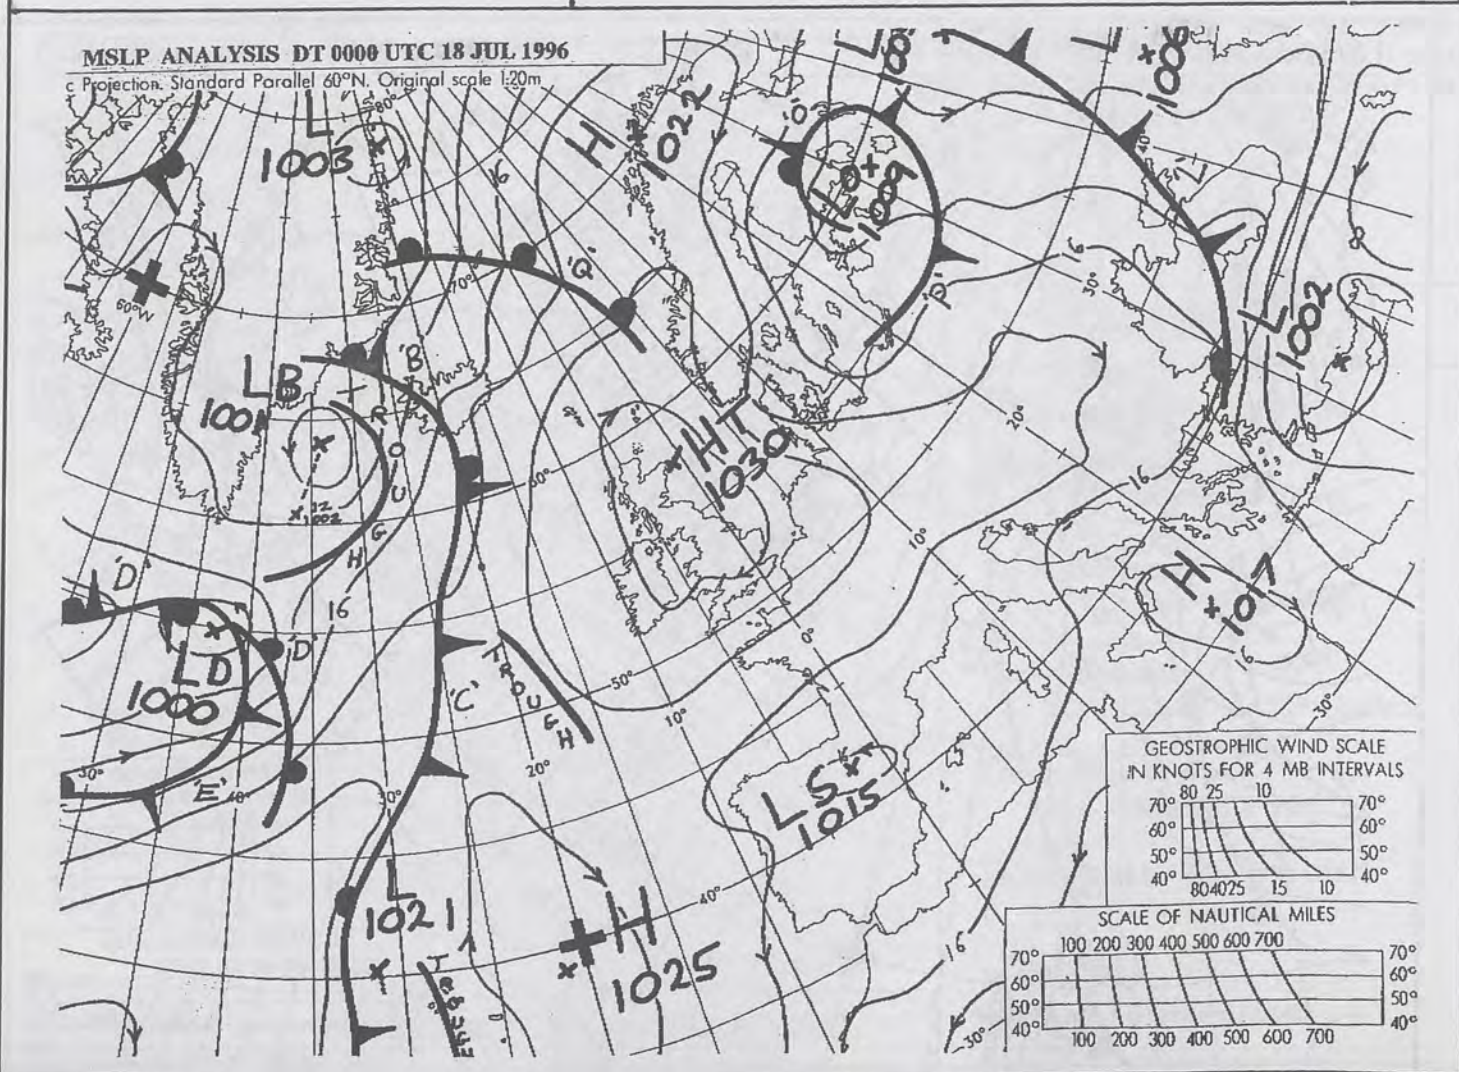 MSLP ANALYSIS DT 0000 UTC 18 JUL 1996
c Projection. Standard Parallel 60°N. Original scale 1:20m
80°
L
1003
16
H
1022
'O'
L O
1009
L
1006
40°
'Z'
60°W
70°
'Q'
'P'
16
30°
L
1002
L B
1001
'B'
TROUGH
12
1002
HT
1030
20°
16
10°
0°
'D'
16
L D
1000
'D'
'C'
TROUGH
50°
10°
20°
H
1017
16
30°
50°
'E'
40°
30°
L S
1015
L
1021
H
1025
40°
16
30°
GEOSTROPHIC WIND SCALE
IN KNOTS FOR 4 MB INTERVALS
80 25 10
70° 70°
60° 60°
50° 50°
40° 40°
80 40 25 15 10
SCALE OF NAUTICAL MILES
100 200 300 400 500 600 700
70° 70°
60° 60°
50° 50°
40° 40°
100 200 300 400 500 600 700